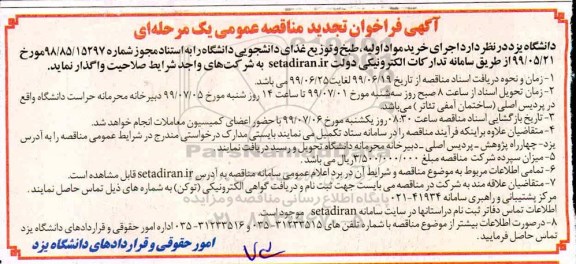 آگهی فراخوان تجدید مناقصه عمومی یک مرحله‌ای
دانشگاه یزد در نظر دارد اجرای خرید مواد اولیه، طبخ و توزیع غذای دانشجویی دانشگاه را به استناد مجوز شماره ۹۸/۸۵/۱۵۲۹۷ مورخ
۹۹/۰۵/۲۱ از طریق سامانه تدارکات الکترونیکی دولت setadiran.ir به شرکت‌های واجد شرایط صلاحیت واگذار نماید.
۱- زمان و نحوه دریافت اسناد مناقصه از تاریخ ۹۹/۰۶/۱۹ لغایت ۹۹/۰۶/۲۵ می باشد.
۲- زمان تحویل اسناد از ساعت ۸ صبح روز سه‌شنبه مورخ ۹۹/۰۷/۰۱ تا ساعت ۱۴ روز شنبه مورخ ۹۹/۰۷/۰۵ دبیرخانه محرمانه حراست دانشگاه واقع
در پردیس اصلی (ساختمان آمفی تئاتر) می‌باشد.
۳- تاریخ بازگشایی اسناد مناقصه ساعت ۰۸:۳۰ روز یکشنبه مورخ ۹۹/۰۷/۰۶ با حضور اعضای کمیسیون معاملات انجام خواهد شد.
۴- متقاضیان علاوه بر اینکه فرآیند مناقصه را در سامانه ستاد تکمیل می نمایند بایستی مدارک درخواستی مندرج در شرایط عمومی مناقصه را به آدرس
یزد- چهارراه پژوهش - پردیس اصلی - دبیرخانه محرمانه دانشگاه تحویل و رسید دریافت نمایند
۵- میزان سپرده شرکت مناقصه مبلغ ۳/۵۰۰/۰۰۰/۰۰۰ ریال می باشد.
۶- تمامی اطلاعات مربوط به موضوع مناقصه و شرایط آن در برد اعلام عمومی سامانه مناقصه به آدرس setadiran.ir قابل مشاهده است.
۷- متقاضیان علاقه مند به شرکت در مناقصه می بایست جهت ثبت نام و دریافت گواهی الکترونیکی (توکن) به شماره های ذیل تماس حاصل نمایند.
مرکز پشتیبانی و راهبری سامانه ۴۱۹۳۴-۰۲۱
اطلاعات تماس دفاتر ثبت نام در استانها در سایت سامانه setadiran موجود است.
۸- در صورت اطلاعات بیشتر از موضوع مناقصه با شماره تلفن های ۳۱۲۳۳۵۱۵-۰۳۵ و ۳۱۲۳۳۵۱۶-۰۳۵ اداره امور حقوقی و قراردادهای دانشگاه یزد
تماس حاصل فرمایید.
امور حقوقی و قراردادهای دانشگاه یزد